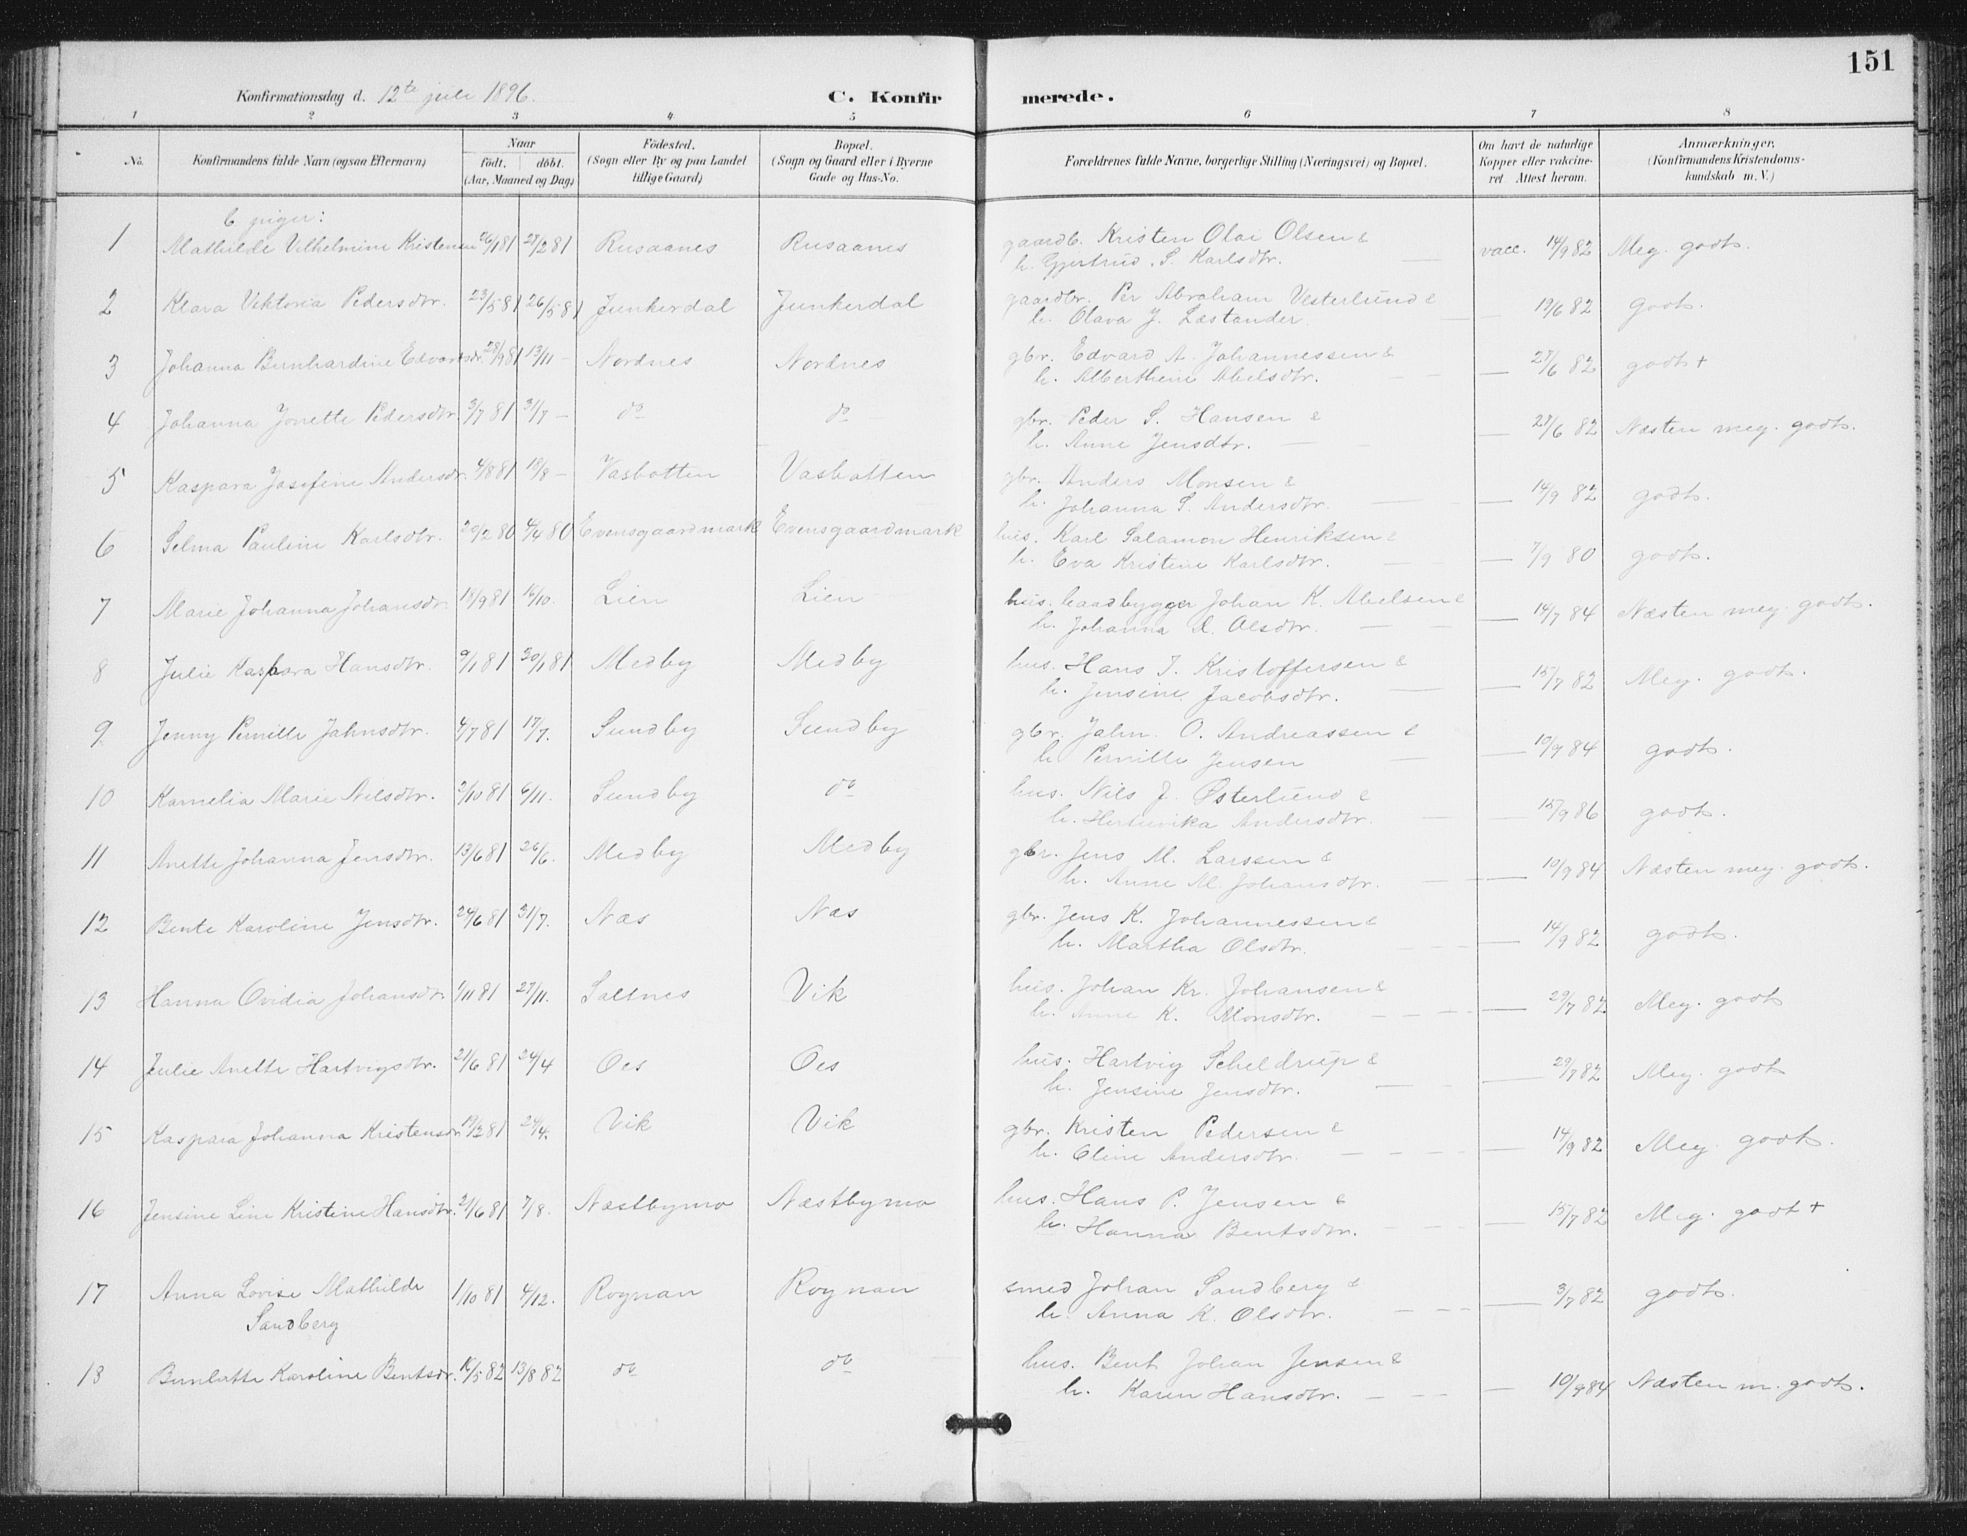 151
Konfirmationsdag d. 12te juli 1896. C. Konfirmerede.
1 2 3 4 5 6 7 8
No. Konfirmandens fulde Navn (ogsaa Efternavn) Naar født. døbt. (Aar, Maaned og Dag) Fødested. (Sogn eller By og paa Landet tillige Gaard) Bopæl. (Sogn og Gaard eller i Byerne Gade og Hus-No. Forældrenes fulde Navne, borgerlige Stilling (Næringsvei) og Bopæl. Om havt de naturlige Kopper eller vakcineret Attest herom. Anmærkninger, (Konfirmandens Kristendomskundskab m. V.)
piger:
1 Mathilde Vilhelmine Kristensen 26/1 81 27/2 81 Rusaanes Rusaanes gaardb. Kristen Olai Olsen & vacc. 14/9 82 Meg. godt.
h. Gjertrud S. Karlsdtr. —
2 Klara Viktoria Pedersdtr. 23/5 81 26/5 81 Junkerdal Junkerdal gaardbr. Per Abraham Vesterlund & — 19/6 82 godt.
h. Olava J. Læstander —
3 Johanna Bernhardine Edvartsdr. 28/9 81 13/11 — Nordnes Nordnes gbr. Edvard A. Johannessen & — 27/6 82 godt +
h. Alberthine Abelsdtr. — —
4 Johanna Jonette Pedersdtr. 3/7 81 31/7 — do do gbr. Peder S. Hansen & — 27/6 82 Næsten meg. godt.
h. Anne Jensdtr. — —
5 Kaspara Josefine Andersdr. 4/8 81 19/8 — Vasbotten Vasbotten gbr. Anders Monsen & — 14/9 82 godt.
h. Johanna S. Andersdtr. — —
6 Selma Pauline Karlsdtr. 20/2 80 4/4 80 Evensgaardmark Evensgaardmark hus. Karl Salamon Henriksen & — 7/9 80 godt.
h. Eva Kristine Karlsdtr. — —
7 Marie Johanna Johansdr 18/9 81 16/10. Lien Lien hus. baadbygger Johan K. Abelsen & — 14/7 84 Næsten meg. godt.
h. Johanna Olsdtr. — —
8 Julie Kaspara Hansdtr. 9/1 81 30/1 81 Medby Medby hus. Hans J. Kristoffersen & — 15/7 82 Meg. godt.
h. Jensine Jacobsdtr. —
9 Jenny Pernille Jahnsdtr. 4/7 81 17/7. Sundby Sundby gbr. Jahn O. Andreassen & — 10/9 84 godt.
h. Pernille Jensen —
10 Kornelia Marie Nilsdtr. 2/10 81 6/11. Sundby do hus. Nils J. Østerlund & — 15/9 86 godt.
h. Andersdtr. — —
11 Anette Johanna Jensdtr. 13/6 81 26/6. Medby Medby gbr. Jens M. Larssen & — 10/9 84 Næsten meg. godt.
h. Anne M. Johansdtr. — —
12 Bente Karoline Jensdtr. 24/6 81 31/7. Næs Næs gbr. Jens K. Johannessen & — 14/9 82 godt.
h. Martha Olsdtr. — —
13 Hanna Ovidia Johansdtr 1/11 81 27/11. Saltnes Vik hus. Johan Kr. Johansen & — 29/7 82 Meg. godt
h. Anne K. Monsdtr. — — —
14 Julie Anette Hartvigsdtr. 21/6 81 24/4 Oes Oes hus. Hartvig Scheldrup & — 29/7 82 Meg. godt
h. Jensine Jensdtr. — —
15 Kaspara Johanna Kristensdr 19/2 81 24/4. Vik Vik gbr. Kristen Pedersen & — 14/9 82 Meg. godt.
h. Oline Andersdtr. — — —
16 Jensine Line Kristine Hansdtr. 21/6 81 7/8. Næstbymo Næstbymo hus. Hans P. Jensen & — 15/7 82 Meg. godt +
h. Hanna Bentsdtr. — — —
17 Anna Lovise Mathilde 1/10 81 4/12. Rognan Rognan smed Johan Sandberg & — 3/7 82 godt.
Sandberg h. Anna K. Olsdtr. — — —
18 Karoline Bentsdr. 5 82 13/8 82 do do hus. Bent Johan Jensen & — 10/9 84 Næsten m. godt.
h. Karen Hansdtr. — — —